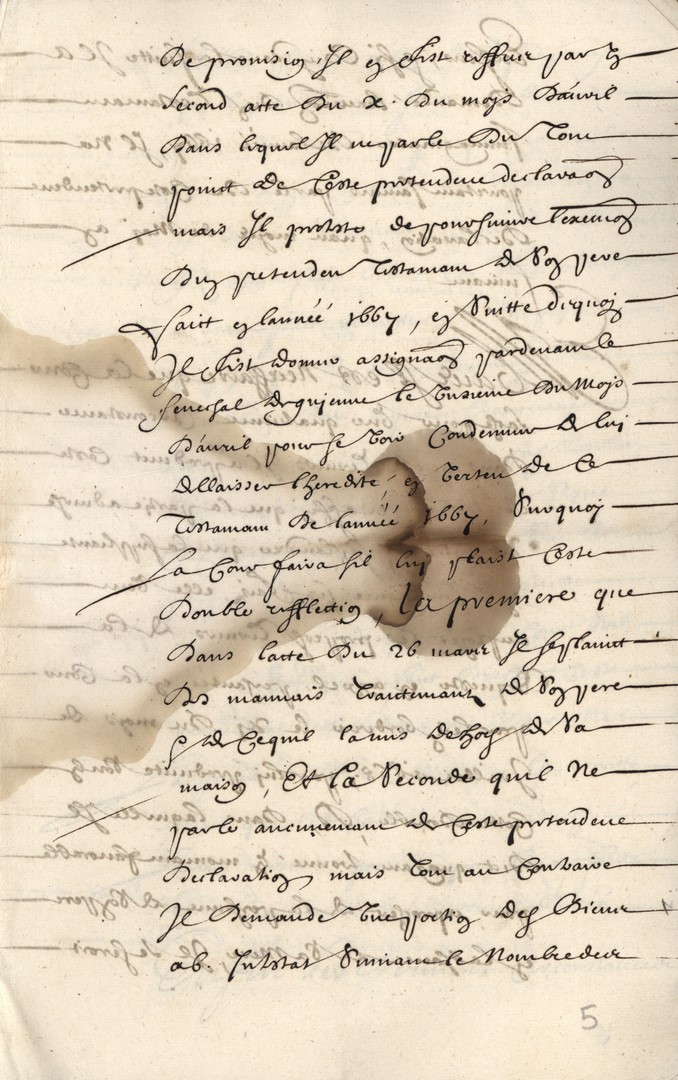 De provision Il en fist reffuz par un
second acte Du X. Du mois D'avril
Dans lequel Il ne parle Du tout
point de ceste pretendeue declaraon
mais Il proteste de poursuivre l'exeuon
Du pretendeu testamant de son pere
faict en lannéé 1667, en suitte dequoy
Il fist donner assignaon pardevant le
senechal de guienne le troisieme Du Mois
D'avril pour se voir Condemner de luy
dellaisser lheredité en verteu de ce
testamant De lannéé 1667, Surquoy
La Cour faira sil luy plaist ceste
Double refflection, la premiere que
Dans lacte Du 26 mars Il se plainct
Des mauvais traictemants de son pere
et de Cequil la mis dehors de sa
maison, Et la Seconde quil ne
parle aucunement de Ceste pretendeue
Declaration mais tout au Contraire
Il Demande une portion des Biens
ab. Intestat Suivant le Nombre des
5